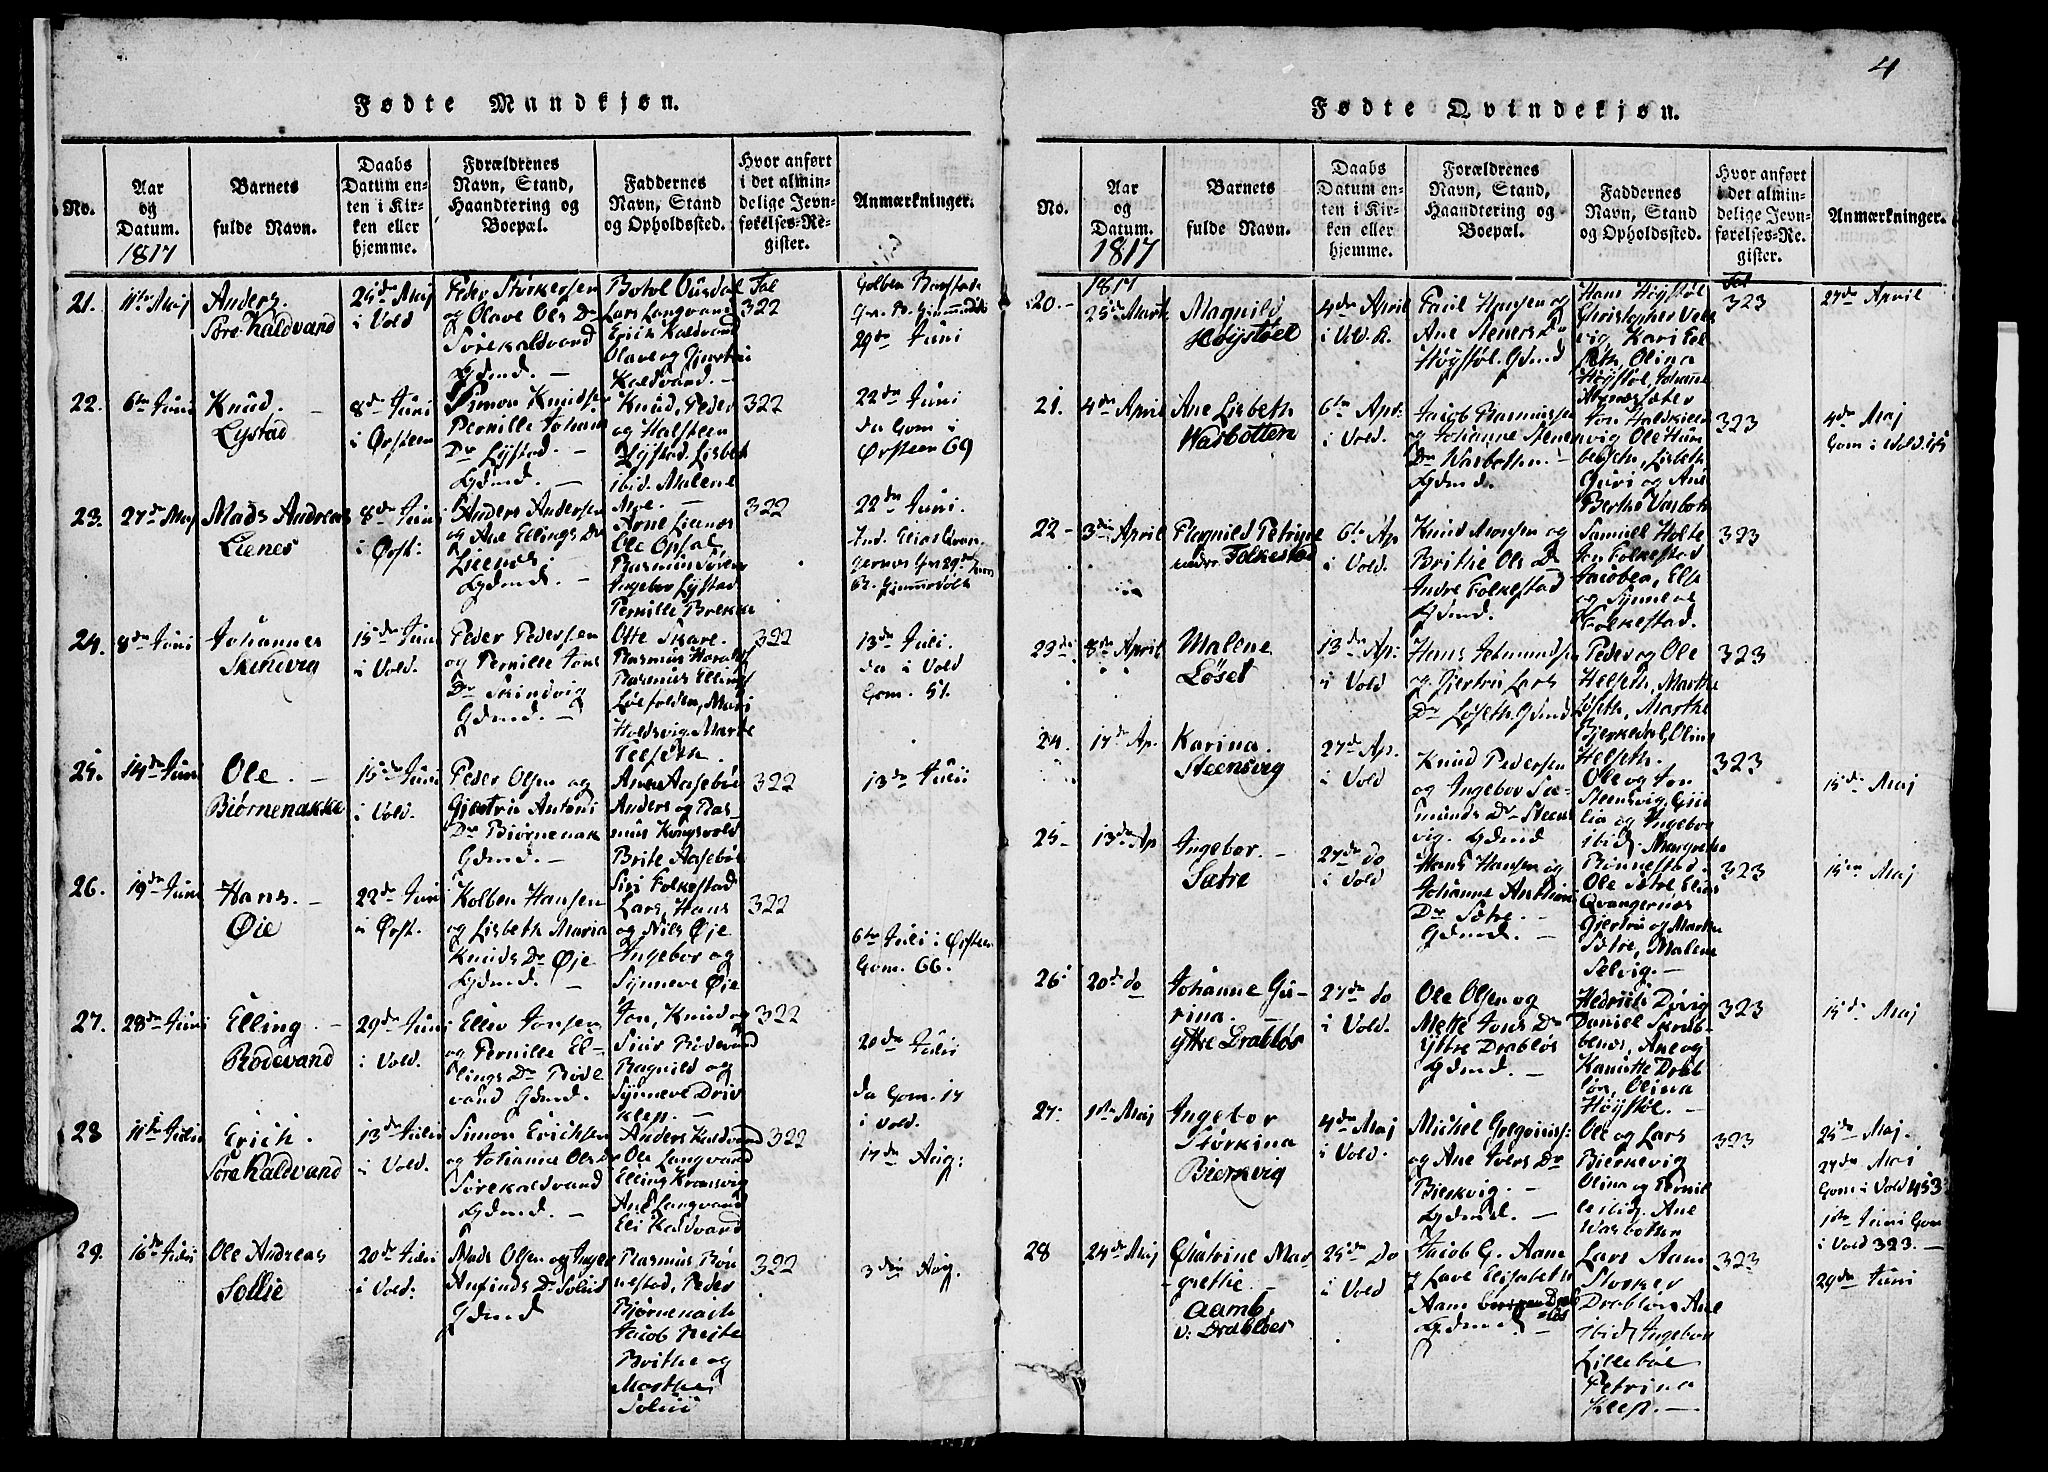 4
Fødte Mandkjøn.
No.
Aar
og
Datum.
1817
Barnets
fulde Navn.
Daabs
Datum en-
ten i Kir-
ken eller
hjemme.
Forældrenes
Navn, Stand,
Haandtering og
Boepæl.
Faddernes
Navn, Stand
og Opholdssted.
Hvor anført
i det almin-
delige Jevn-
førelses-Re-
gister.
Anmærkninger.
21.
11te Maj
Anders.
Søre Kaldvand
25de Maj
i Vold
Peder Størkersen
og Olave Ols Dr
Sørekaldvand
Gdmd. —
Botol Ousdal
Lars Langvand
Erich Kaldvand
Olave og
Kaldvand. —
Fol
322
29de Juni
22.
6te Juni
Knud. —
Lystad
8de Juni
i Ørsteen
Simon Knudsen
Pernille Johans
Dr Lystad. —
Gdmd. —
Knud, Peder
og Halsteen
Lystad. Lisbeth
ibid. Malene
Moe. —
322
22de Juni
da Gom i
Ørsteen 69
23.
27de Maj
Mads Andreas
Lienes
8de Juni
i Ørst:
Anders Andersen
og Ane Ellings Dr
Lienes
Gdmd. —
Arne Lienæs
Ole Opsal
Rasmus Søren
Ingebor Lystad
Pernille Brekke
322
22de Juni.
24.
8de Juni
Johannes
Skindvig
15de Juni
i Vold.
Peder Pedersen
og Pernille Jons
Dr Skindvig
Gdmd. —
Otte Skare.
Rasmus
Rasmus Ellings
Løefolden, Mari
Holdsvig, Marte
Telseth.
322
13de Juli
da i Vold
Gom. 51.
25.
14de Juni
Ole. —
Biørnenakke
15de Juni
i Vold.
Peder Olsen og
Giertru Antoni
Dr Biørnenak
Gdmd. —
Arne Aasebøe
Anders og Ras-
mus Kongsvold
Brite Aasebøe
Siri Folkestad
322
13de Julii
26.
19de Juni
Hans. —
Øie
22de Juni
i Ørst.
Kolben Hansen
og Lisbeth Maria
Knuds Dr Øje
Gdmd. —
Lars, Hans
og Nils Øje
Ingebor og
Synneve Øje
322
6te Juli i Ørsteen
Gom. 66.
27.
28de Juni
Elling. —
Rødevand
29de Juni
i Vold.
Elliv Jonsen
og Pernille El-
lings Dr Røde
vand Gdmd. —
Jon, Knud og
Siur Rødevand
Ragnild og
Synneve Driv
Klep. —
322
20de Julii
da Gom. 17
i Vold.
28
11te Julii
Erich.
Søre Kaldvand
13de Julii
i Vold.
Simon Erichsen
og Johanne Ols Dr
Sørekaldvand
Gdmd. —
Anders Kaldvand
Ole Langvand
Elling Kronsvig
Ane Langvand
Eli Kaldvand
322
17de Aug:
29.
16de Julii
Ole Andreas
Sollie
20de Julii
i Vold:
Mads Olsen og
Anfinds Dr Soliid
Gdmd
Rasmus Røn
nestad, Peder
Bjørnenach
Jacob Neite
Brithe og
Marthe
Soliii
322
3die Aug.
Fødte Qvindekjøn.
No.
Aar
og
Datum.
1817
Barnets
fulde Navn.
Daabs
Datum en-
ten i Kir-
ken eller
hjemme.
Forældrenes
Navn, Stand,
Haandtering og
Boepæl.
Faddernes
Navn, Stand
og Opholdssted.
Hvor anført
i det almin-
delige Jevn-
førelses-Re-
gister.
Anmærkninger.
1817
20. —
25de Marts
Magnild
Høystøel
4de April
i Vold. K.
Poul Hansen og
Ane Steners Dr
Høystøl. Gdmd
Hans Høystøl
Christopher Vel
vig, Kari
Olina
Høystøl, Johanne
Fol
323
27de April
21.
4de April
Ane Lisbeth
Wasbotten
6te Apr:
i Vold.
Jacob Rasmussen
og Johanne Steen
Dr Wasbotten. —
Gdmd.
Jon Haldkield
vig Ole Hum
berseth, Lisbeth
Guri og Ane
Berthe Vasbotn
323
4de Maj
Gom i Vold.
22 —
3die April
Ragnild Petrine
Folkestad
6te Ap
i Vold.
Knud Monsen og
Brithe Ols Dr
Indre Folkestad
Gdmd.
Samuell Holte
Jon Folkestad
Jacobea, Else
og Synneve
Folkestad.
323
23de
8de April
Malene
Løset
13de Ap:
i Vold
Hans Jetmundsen
og Giertru Lars
Dr Løseth. Gdmd
Peder og Ole
Helseth, Marthe
Løseth, Marthe
Bjerkedal, Olina
Helseth.
323
24.
17de Ap.
Karina.
Steensvig
27de Ap.
i Vold
Knud Pedersen
og Ingebor Sæ-
munds Dr Steens
vig. Gdmd
Ole og Jon
Steensvig,
og Ingebor
ibid, Margrethe
Rønnestad.
323
15de Maj
25 —
13de Ap
Ingebor. —
Sætre
27de do
i Vold
Hans Hansen og
Johanne Anthoni
Dr Sætre. —
Gdmd. —
Ole Sætre Elias
Qvangernæs
Giertru og Marthe
Sætre, Malene
Selvig. —
323
15de Maj
26:
20de do
Johanne Gu-
rina. —
Yttre Drabløs
27de do
i Vold.
Ole Olsen og
Mette Jons Dr
Yttre Drabløs
Gdmd. —
Daniel Skrub-
benes, Ane og
Drab
løs, Olina
Høystøl. —
323
15de Maj
27:
1ste Maj
Ingebor
Størkina
Bierkvig
4de Maj
i Vold.
Michel Gregoriiss:
og Ane Ivers Dr
Bierkvig. —
Gdmd. —
Ole og Lars
Bierkevig
Olina og Pernil
ibid. Ane
Wasbotten
323
25de Maj.
27de Maj
Gom i Vold 453
1ste Juni Gom
i Vold 323. —
28
24de Maj
Chatrine Mar
grethe —
Aamb.
v: Drabløes
25de Do
i Vold
Jacob G. Aam
og Lave Elisabeth
Aam
Gdmd
Lars Aam
Storker
Drabløs Ane
ibid, Ingebor
Lillebøe
Petrina
Kleep. —
323
29de Juni